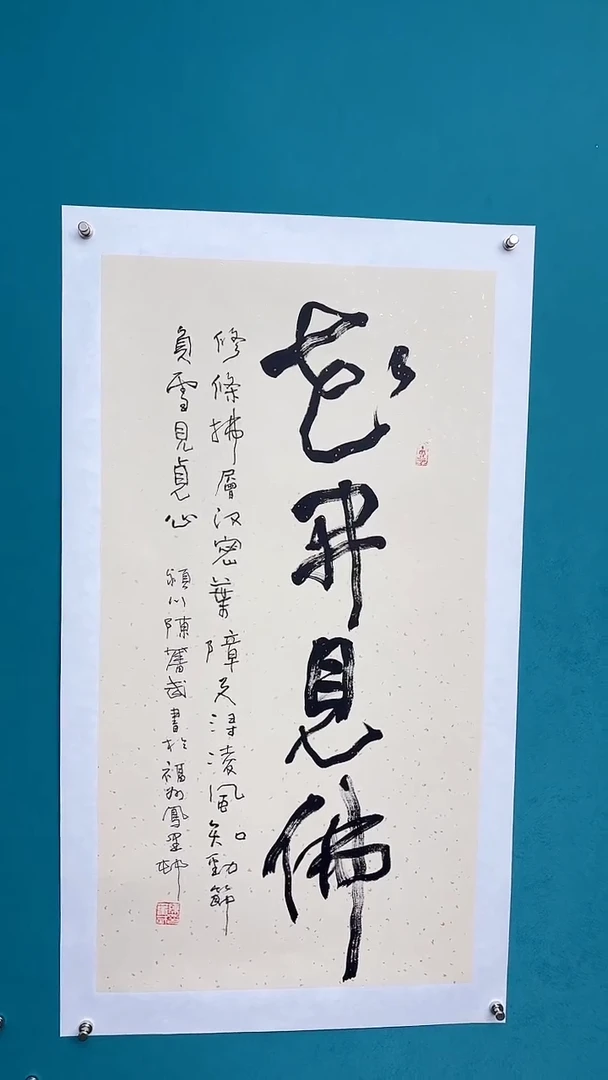 花開見佛
修條拂層汉密葉障天潯凌風知勁節
負雪見貞心 潁川陳奮武書於福州鳳里邨